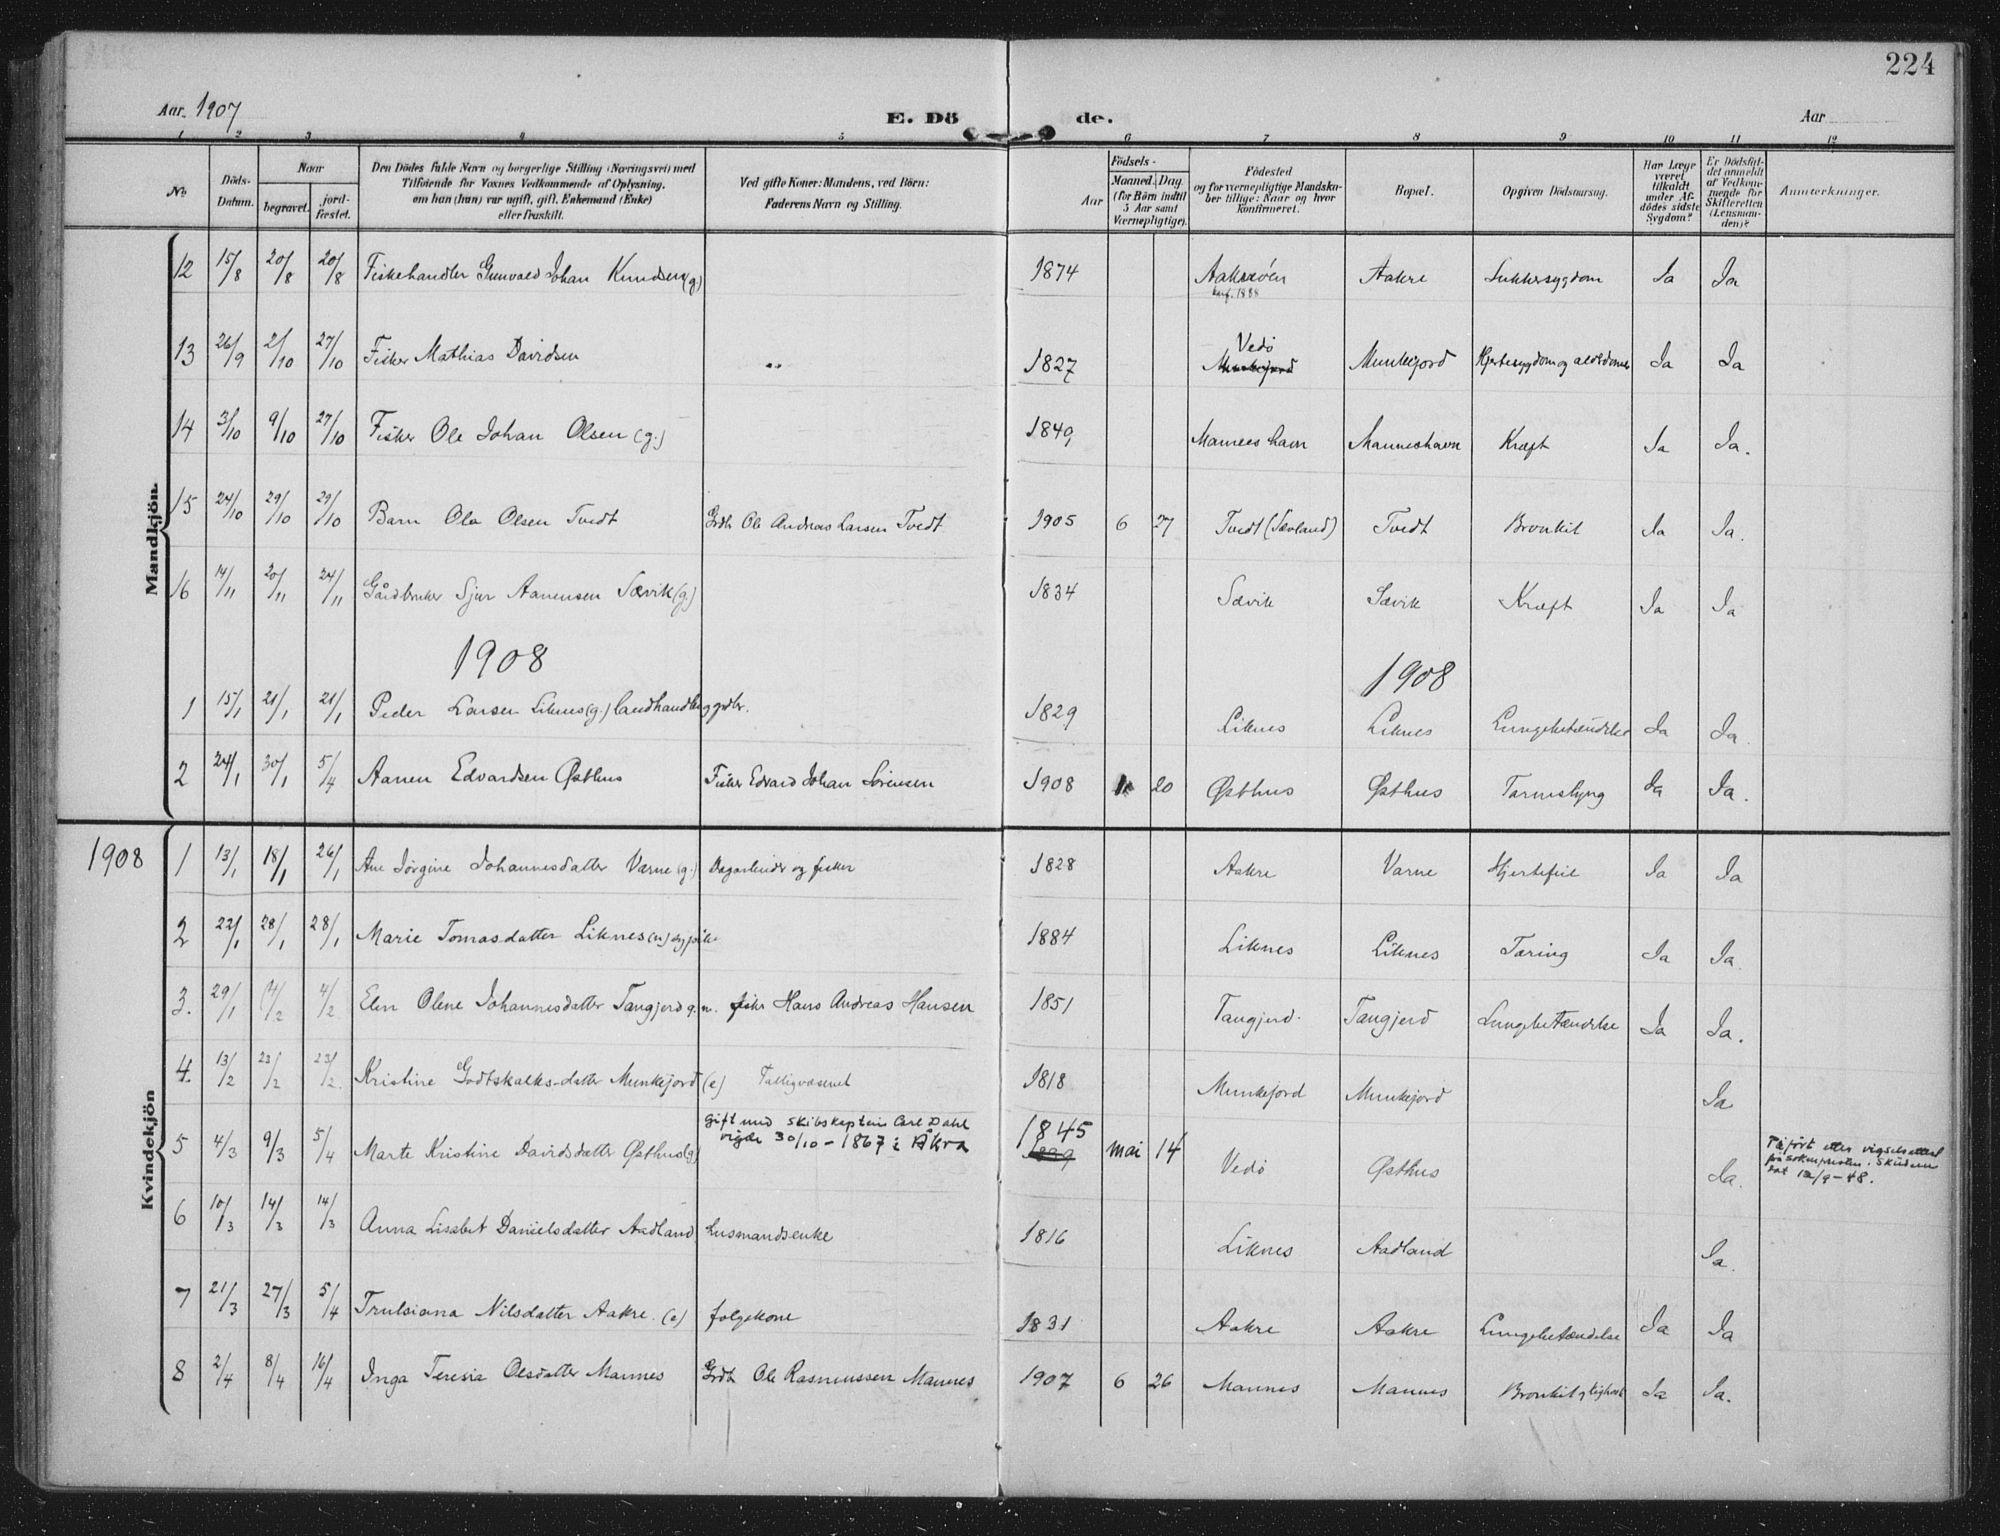 224
Aar. 1907
E. Dö
de.
Aar
1 2 3 4 5 6 7 8 9 10 11 12
No
Döds-Datum.
Naar
begravet.
jord-fæstet.
Den Dödes fulde Navn og borgerlige Stilling (Næringsvei) med
Tilföiende for Voxnes Vedkommende af Oplysning.
om han (hun) var ugift, gift, Enkemand (Enke)
eller fraskilt.
Ved gifte Koner: Mandens, ved Börn:
Faderens Navn og Stilling.
Födsels-
Aar
Maaned. Dag.
(for Börn indtil
5 Aar samt
Værnepligtige).
Födested
og for værnepligtige Mandska-
ber tillige: Naar og hvor
konfirmeret.
Bopæl.
Opgiven Dödsaarsag.
Har Læge
været
tilkaldt
under Af-
dödes sidste
Sygdom?
Er Dödsfal-
det anmeldt
af Vedkom-
mende for
Skifteretten
(Lensman-
den)?
Anmerkninger.
Mandkjön.
12 15/8 20/8 20/8 Fiskehandler Gunvald Johan Knudsen (g.) 1874 Aakreöen Aakre Sukkersygdom Ja Ja
konf. 1888
13 26/9 2/10 27/10 Fisker Mathias Davidsen " 1827 Vedö Munkejord Hjertesygdom og alderdoms Ja Ja
Munkejord
14 3/10 9/10 27/10 Fisker Ole Johan Olsen (g.) 1849 Mannes havn Manneshavn Kræft Ja Ja.
15 24/10 29/10 29/10 Barn Ola Olsen Tvedt Grdb. Ole Andreas Larsen Tvedt 1905 6 27 Tvedt (Sævland) Tvedt Bronkit Ja Ja.
16 14/11 20/11 24/11 Gårdbruker Sjur Aanensen Sævik (g.) 1834 Sævik Sævik Kræft Ja Ja
1908 1908
1 15/1 21/1 21/1 Peder Larsen Liknes (g.) landhandler og grdbr. 1829 Liknes Liknes Lungebetændelse Ja Ja.
2 24/1 30/1 5/4 Aanen Edvardsen Østhus Fisker Edvard Johan Sörensen 1908 1 20 Østhus Østhus Tarmslyng Ja Ja.
1908
Kvindekjön
1 13/1 18/1 26/1 Ane Jörgine Johannesdatter Varne (g.) Dagarbeider og fisker 1828 Aakre Varne Hjertefeil Ja Ja
2 22/1 28/1 28/1 Marie Tomasdatter Liknes (u) sypike 1884 Liknes Liknes Tæring Ja Ja.
3. 29/1 4/2 4/2 Elen Olene Johannesdatter Tangjerd g. m. fisker Hans Andreas Hansen 1851 Tangjerd. Tangjerd Lungebetændelse Ja Ja.
4. 13/2 23/2 23/2. Kristine Godtskalks-datter Munkejord (e) Fattigvæsenet 1818 Munkejord Munkejord Ja
5 4/3 9/3 5/4 Marte Kristine Davidsdatter Østhus (g) Gift med skibskaptein Carl Dahl
vigde 30/10 - 1867 i Åkra 1845 mai 14 Vedö Østhus Ja.
1839
Tilfört etter vigselsattest
fra soknepresten i Skudenes
dat 12/9 - 48.
6 10/3 14/3 14/3 Anna Lisabet Danielsdatter Aadland Husmandsenke 1816 Liknes Aadland Ja.
7 21/3 27/3 5/4 Trulsiana Nilsdatter Aakre. (e) folgekone 1831 Aakre Aakre Lungebetændelse Ja Ja
8 2/4 8/4 16/4 Inga Teresia Olsdatter Mannes Grdb. Ole Rasmussen Mannes 1907 6 26 Mannes Mannes Ja Ja.